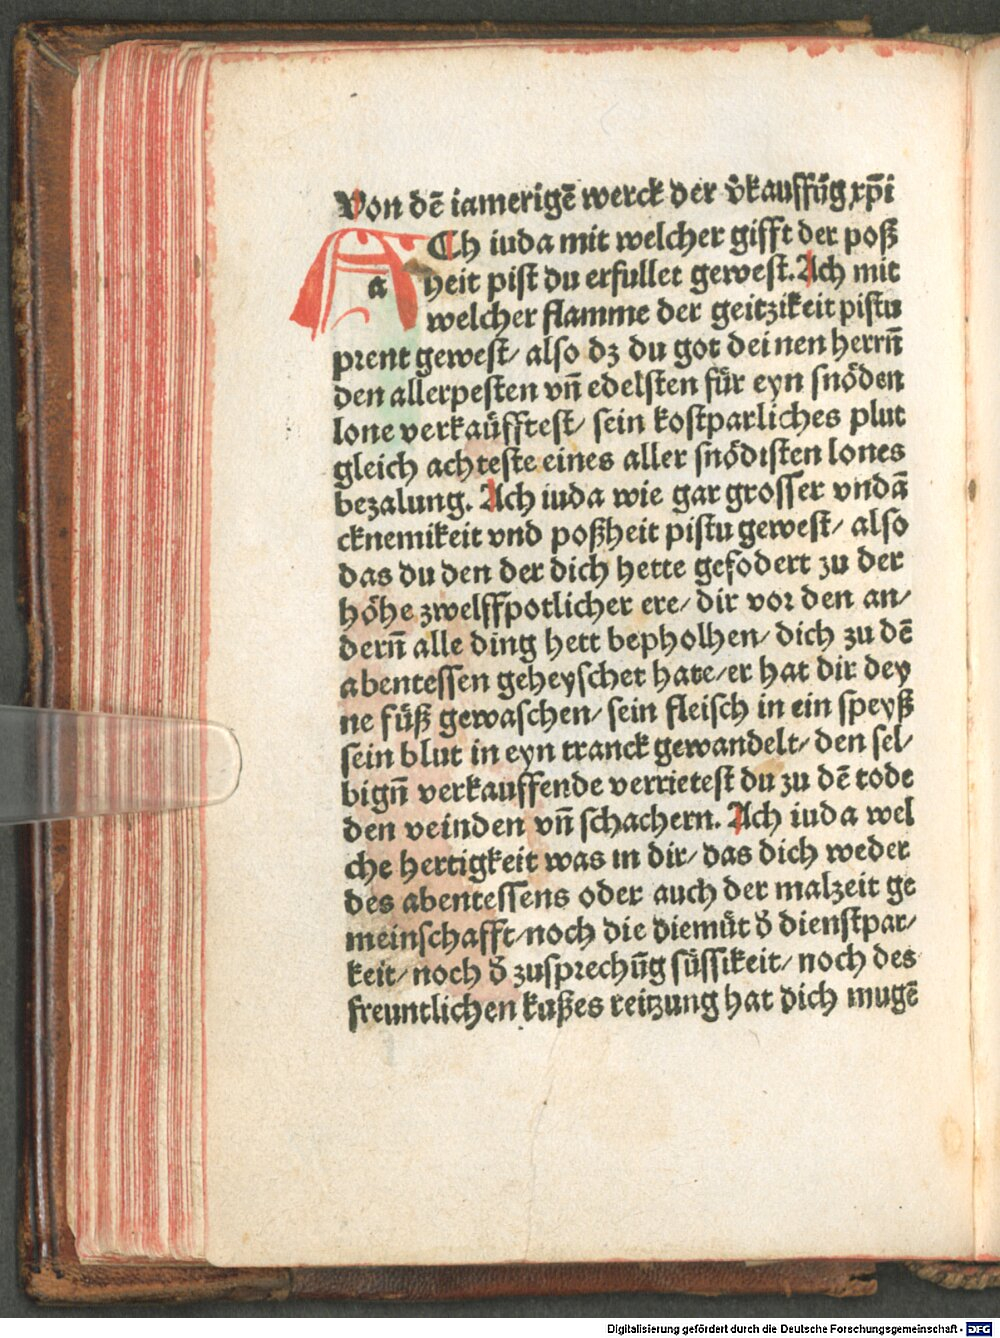 Von dē iamerigē werck der v̄kauffūg xp̄i
ACh iuda mit welcher gifft der poß
a heit pist du erfullet gewest. Ach mit
welcher flamme der geitzikeit pistu
prent gewest/ also dz du got deinen herrn̄
den allerpesten vn̄ edelsten für eyn snöden
lone verkaüfftest/ sein kostparliches plut
gleich achteste eines aller snödisten lones
bezalung. Ach iuda wie gar grosser vndā
cknemikeit vnd poßheit pistu gewest/ also
das du den der dich hette gefodert zu der
höhe zwelffpotlicher ere/ dir vor den an/
dern̄ alle ding hett bepholhen/ dich zu dē
abentessen geheyschet hate/ er hat dir dey
ne füß gewaschen/ sein fleisch in ein speyß
sein blut in eyn tranck gewandelt/ den sel/
bign̄ verkauffende verrietest du zu dē tode
den veinden vn̄ schachern. Ach iuda wel
che hertigkeit was in dir/ das dich weder
des abentessens oder auch der malzeit ge
meinschafft/ noch die diemüt d̄ dienstpar/
keit/ noch d̄ zusprechūg süssikeit/ noch des
freuntlichen kußes reitzung hat dich mugē
Digitalisierung gefördert durch die Deutsche Forschungsgemeinschaft - DFG